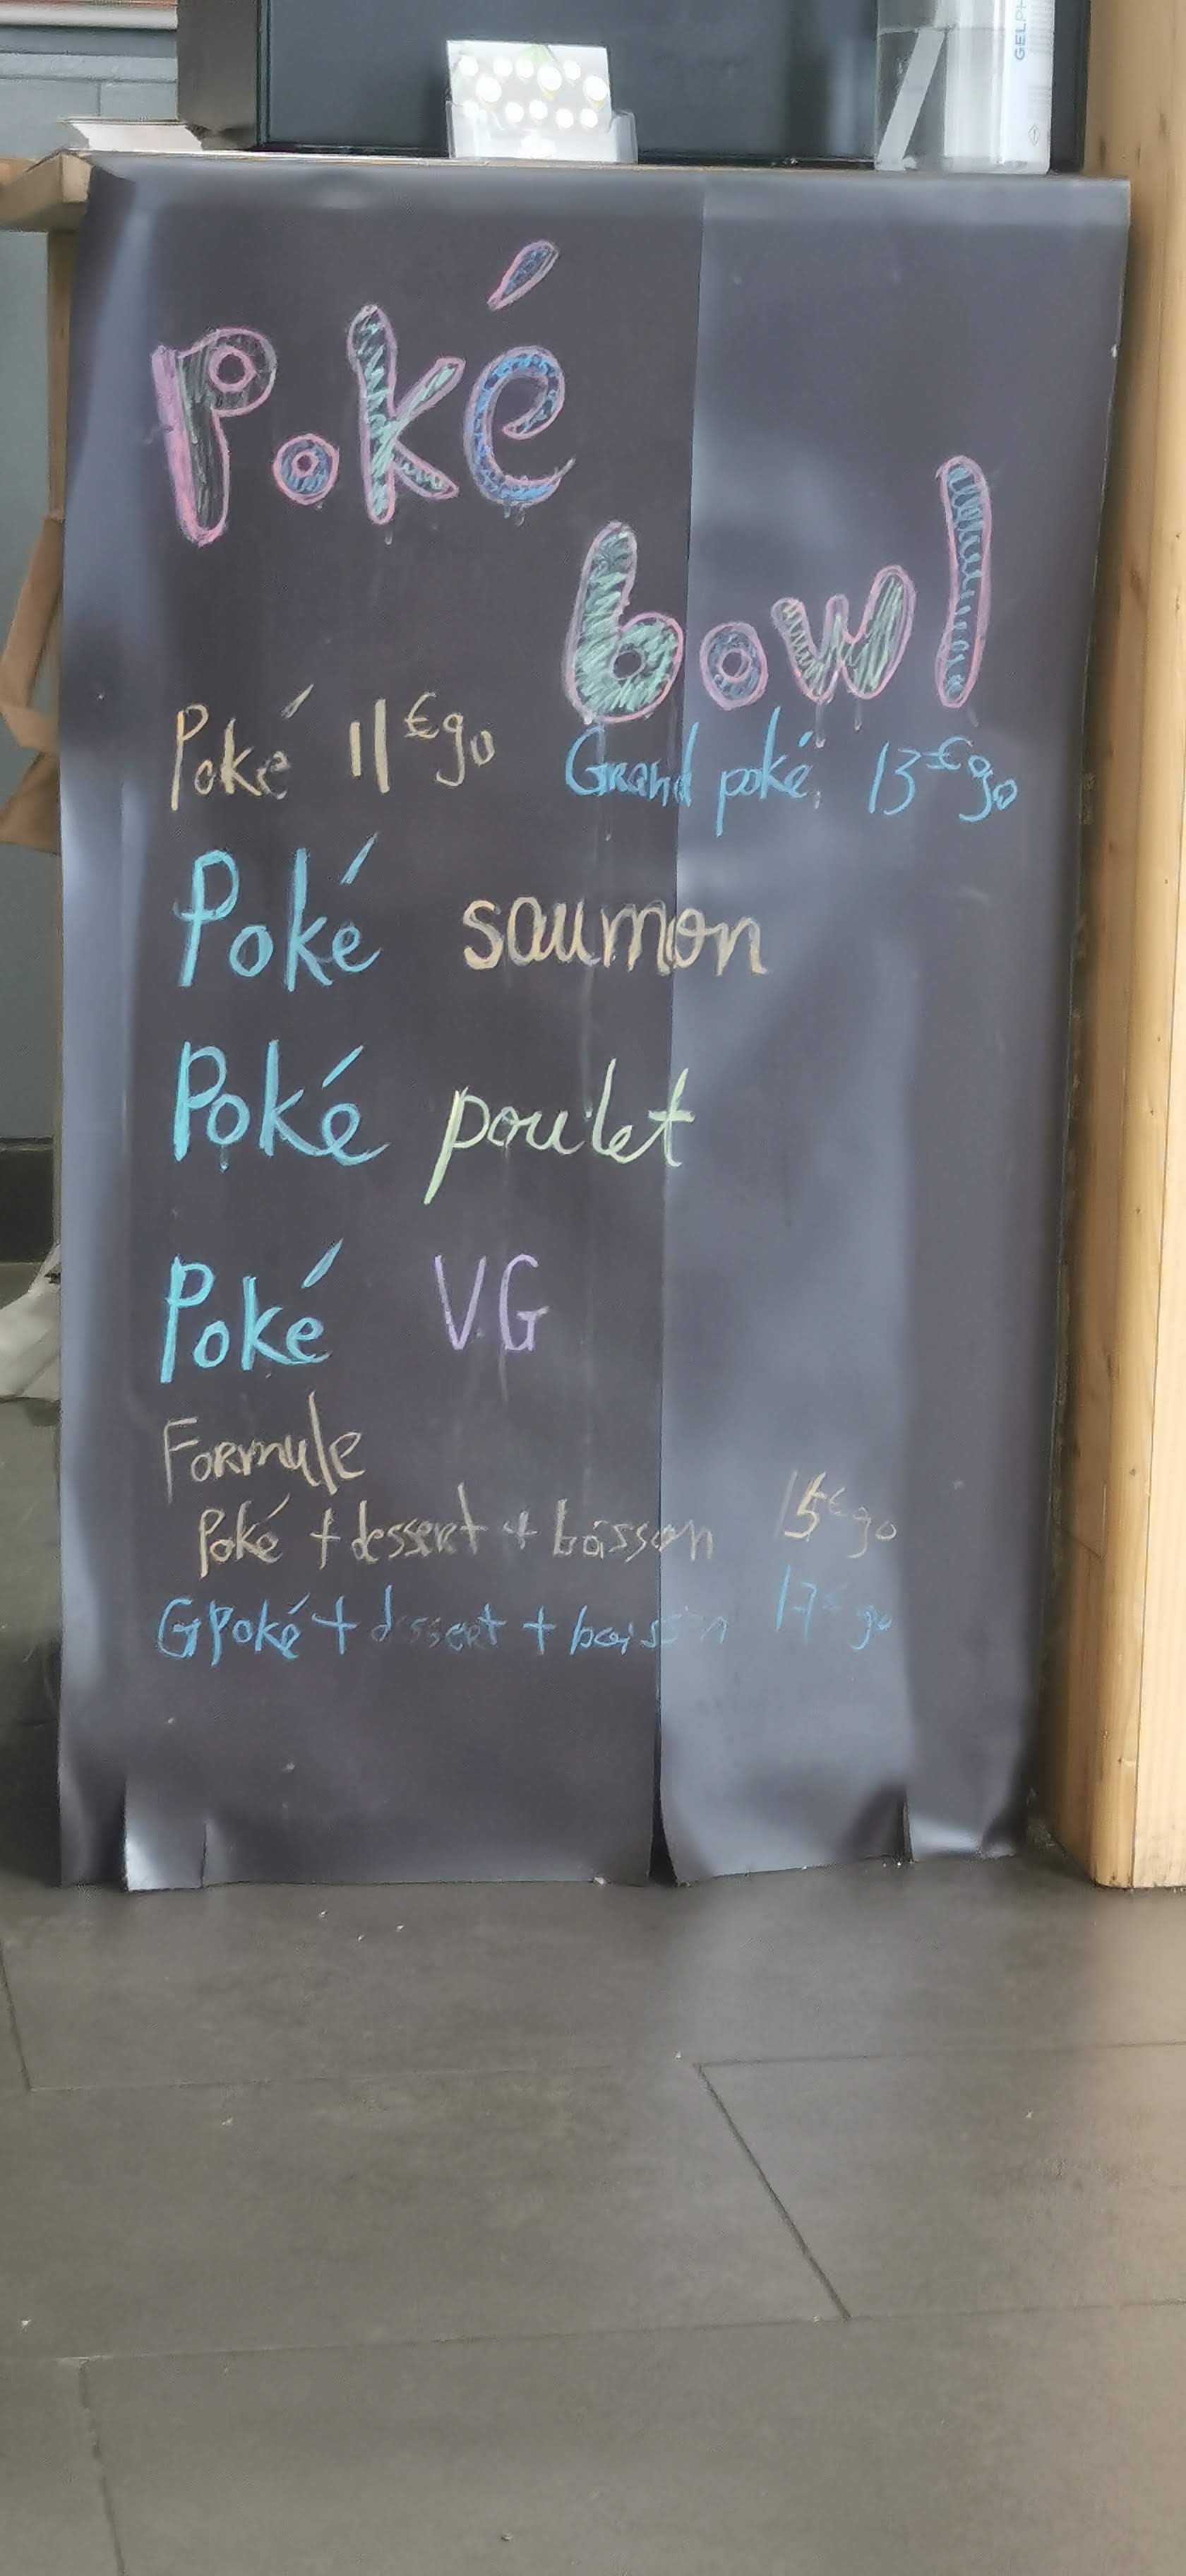 GELPH
Poké
bowl
Poké 11€90 Grand poké 13€90
Poké saumon
Poké poulet
Poké VG
Formule
Poké + dessert + boisson 15€90
G Poké + dessert + boisson 17€90